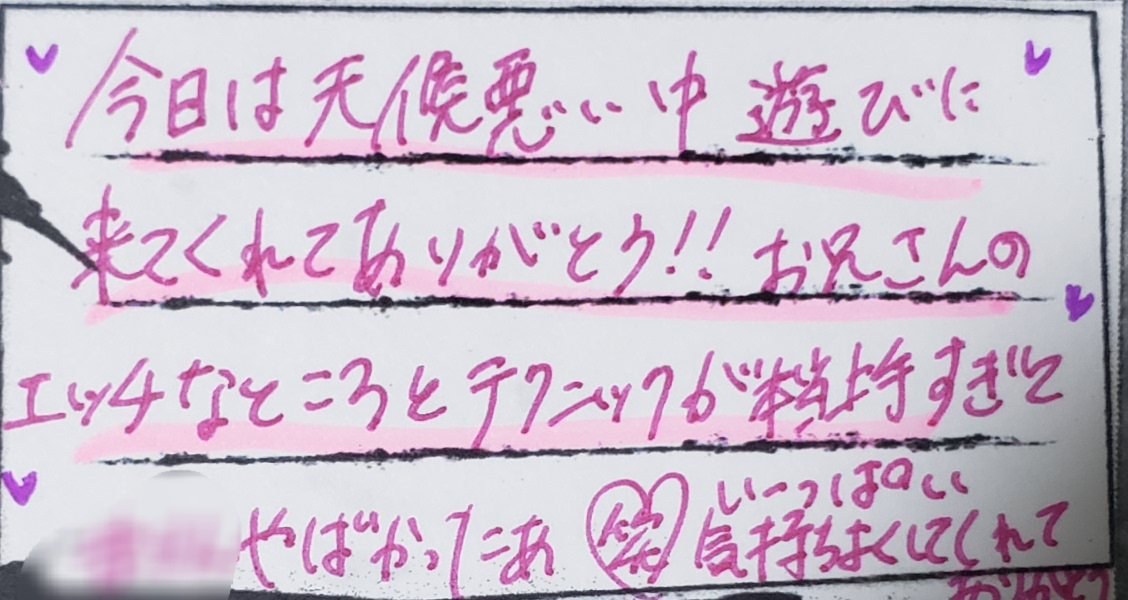 今日は天候悪い中 遊びに
来てくれてありがとう!! お兄さんの
エッチなところとテクニックが 上手すぎて
やばかったあ 笑
いーっぱい
気持ちよくしてくれて
ありがとう